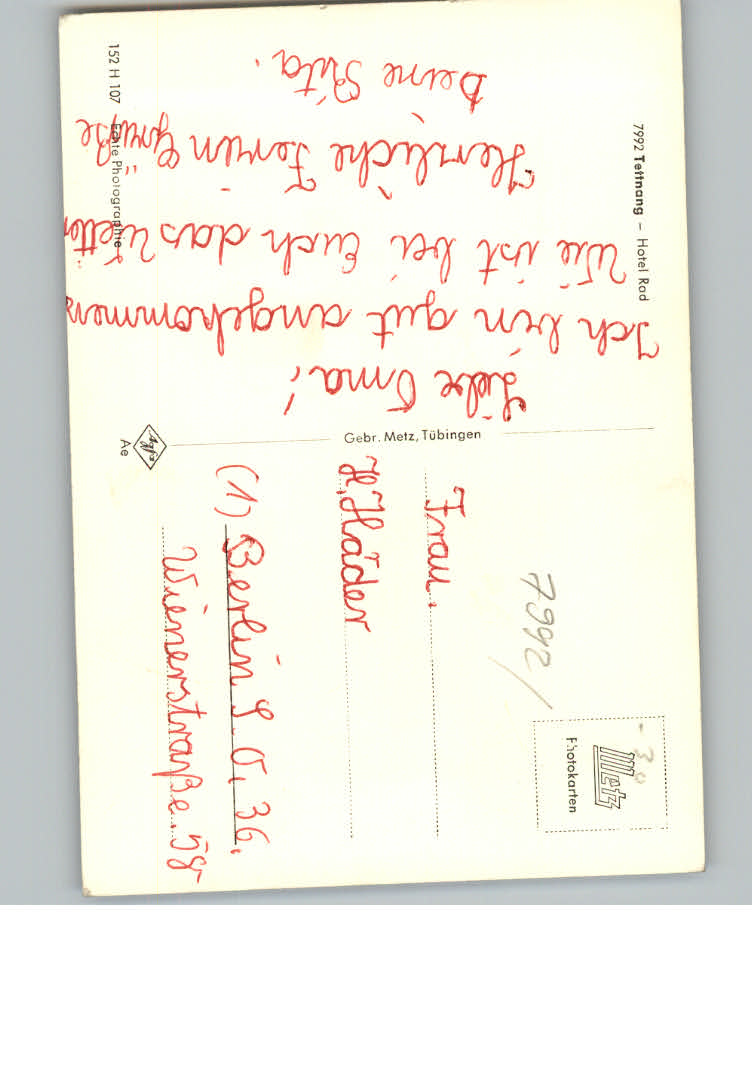 7992 Tettnang – Hotel Rad
Liebe Oma!
Ich bin gut angekommen
Wie ist bei Euch das Wetter
Herzliche Ferien Grüße
Deine Rita.
152 H 107 Echte Photographie
Gebr. Metz, Tübingen
Agfa
Ae
Metz
Photokarten
-30
7992/
Frau.
H. Häder
(1) Berlin S.O. 36.
Wienerstraße. 58